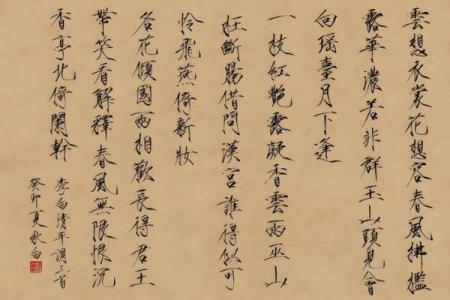 雲想衣裳花想容春風拂檻
露華濃若非群玉山頭見會
向瑤臺月下逢
一枝紅艷露凝香雲雨巫山
枉斷腸借問漢宮誰得似可
憐飛燕倚新妝
名花傾國兩相歡長得君王
帶笑看解釋春風無限恨沉
香亭北倚闌幹
李白清平調三首
癸卯夏秋白